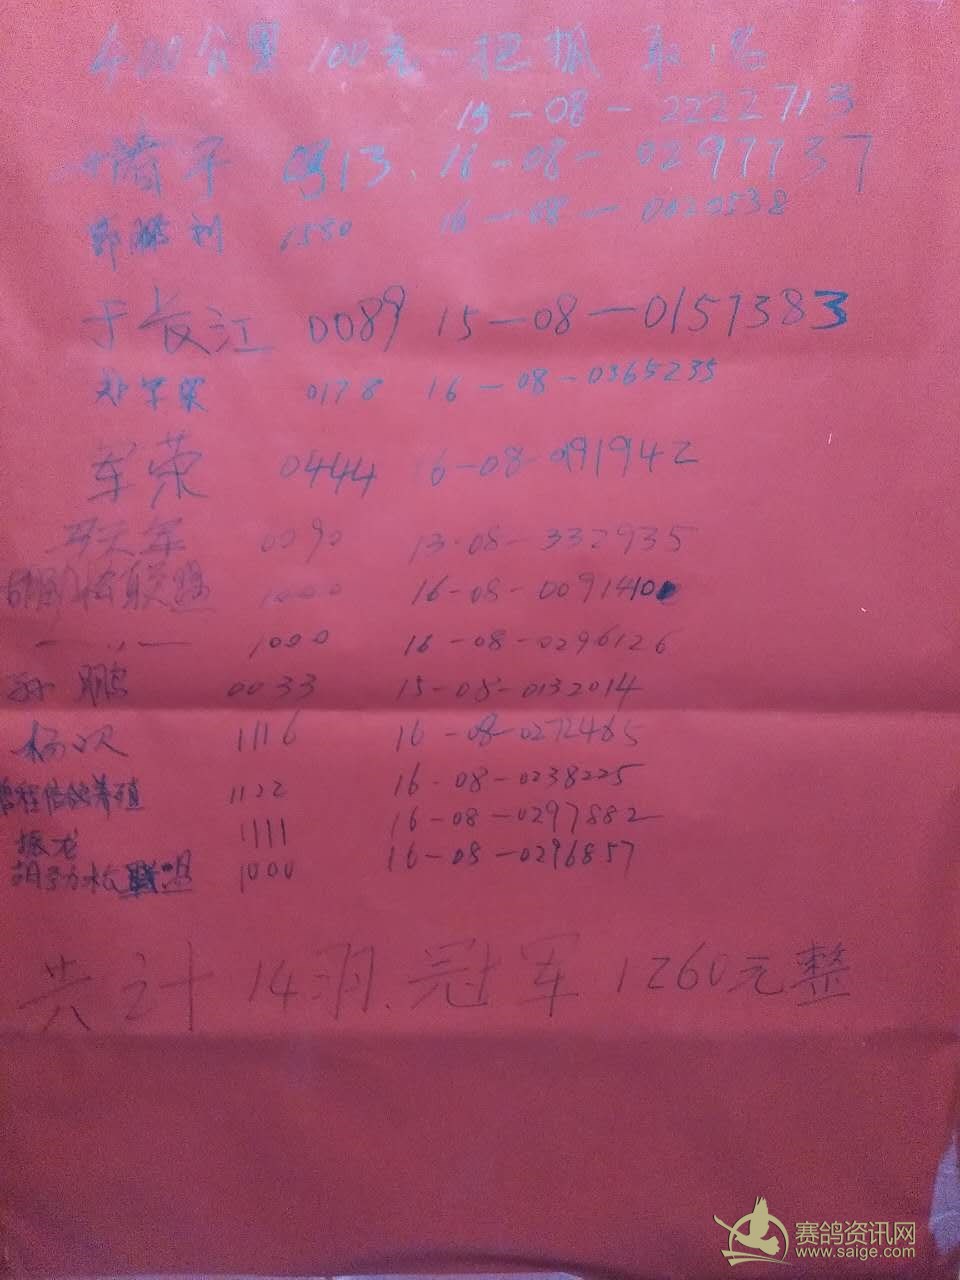 400公里 100元一把抓 取1名
15-08-2222713
0313 16-08-0297737
郎胜利 1550 16-08-0020538
于长江 0089 15-08-0157383
0178 16-08-0365235
军荣 0444 16-08-0191942
0090 13-08-332935
胡劲松联盟 1000 16-08-0091410
—〃— 1000 16-08-0296126
孙鹏 0033 15-08-0132014
杨欢 1116 16-08-0272465
1122 16-08-0238225
振龙 1111 16-08-0297882
胡劲松联盟 1000 16-08-0296857
共计14羽.冠军1260元整
赛鸽资讯网
www.saige.com